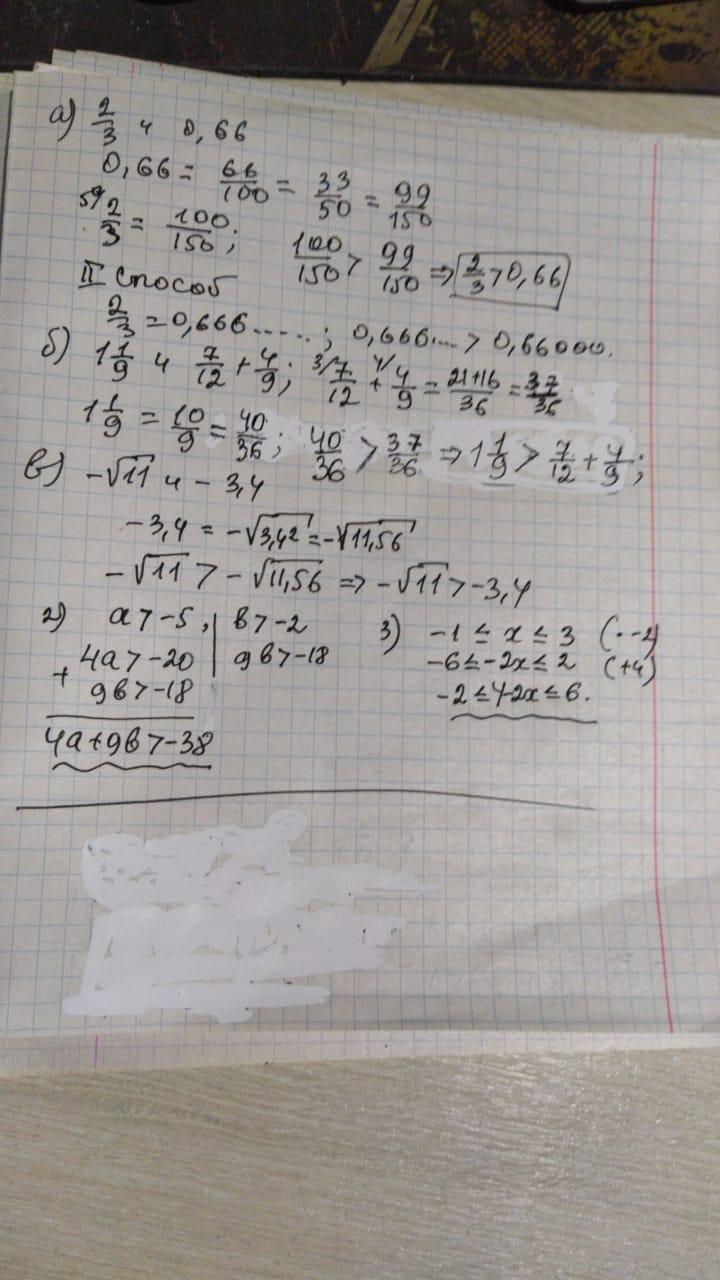 а) 2/3 и 0,66
0,66 = 66/100 = 33/50 = 99/150
50/ 2/3 = 100/150; 100/150 > 99/150 ⇒ 2/3 > 0,66
II способ
2/3 = 0,666.....; 0,666... > 0,66000.
б) 1 1/9 и 7/12 + 4/9; 3/ 7/12 + 4/ 4/9 = 21+16/36 = 37/36
1 1/9 = 10/9 = 40/36; 40/36 > 37/36 ⇒ 1 1/9 > 7/12 + 4/9;
в) -√11 и -3,4
-3,4 = -√3,4² = -√11,56
-√11 > -√11,56 ⇒ -√11 > -3,4
2) a > -5, | b > -2
4a > -20 | 9b > -18
+ 9b > -18
4a+9b > -38
3) -1 ≤ x ≤ 3 (· -2)
-6 ≤ -2x ≤ 2 (+4)
-2 ≤ 4-2x ≤ 6.